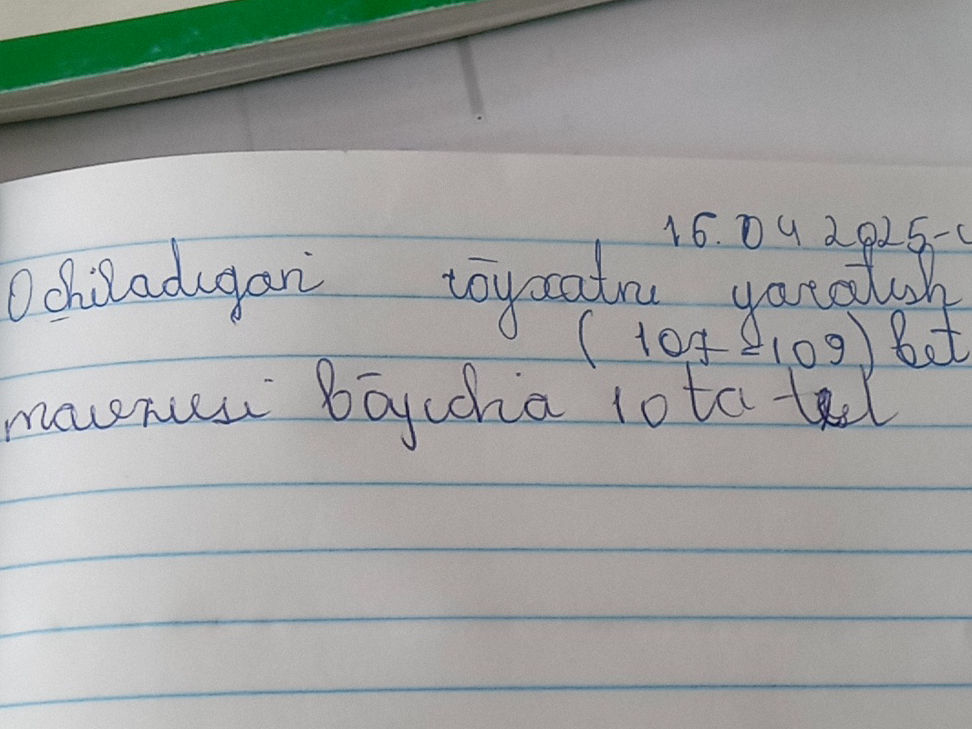 16.04 2025-
Ochiladigan rōyxatni yaratish
(107-109) bet
mavzusi bōyicha 10 ta